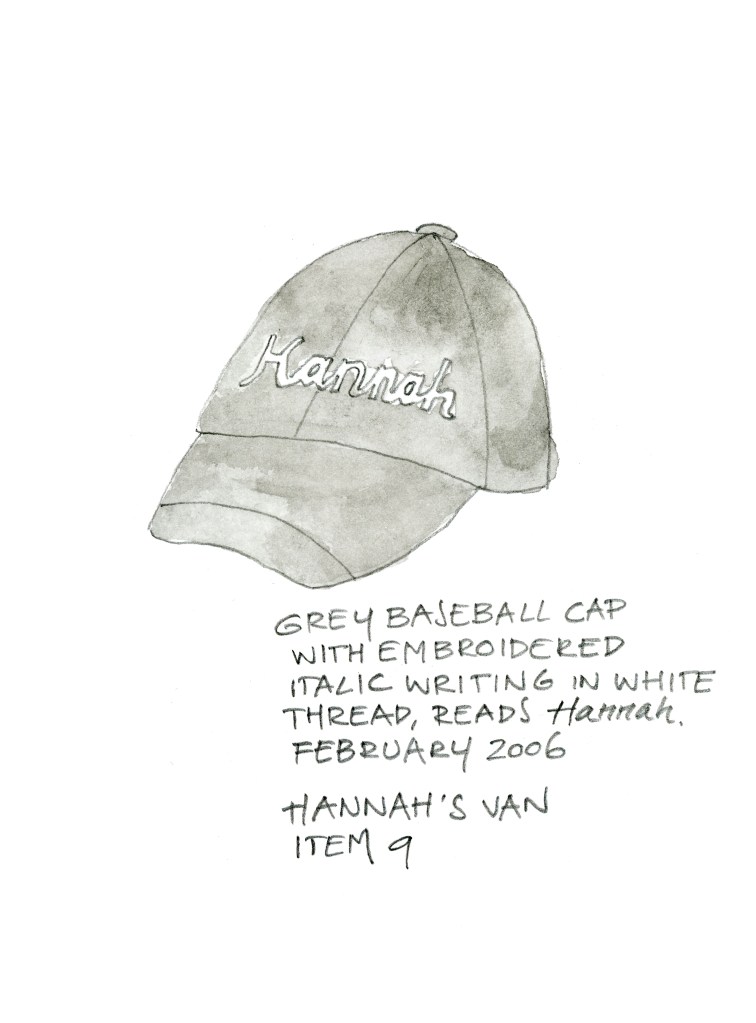 Hannah
GREY BASEBALL CAP
WITH EMBROIDERED
ITALIC WRITING IN WHITE
THREAD, READS Hannah.
FEBRUARY 2006
HANNAH'S VAN
ITEM 9